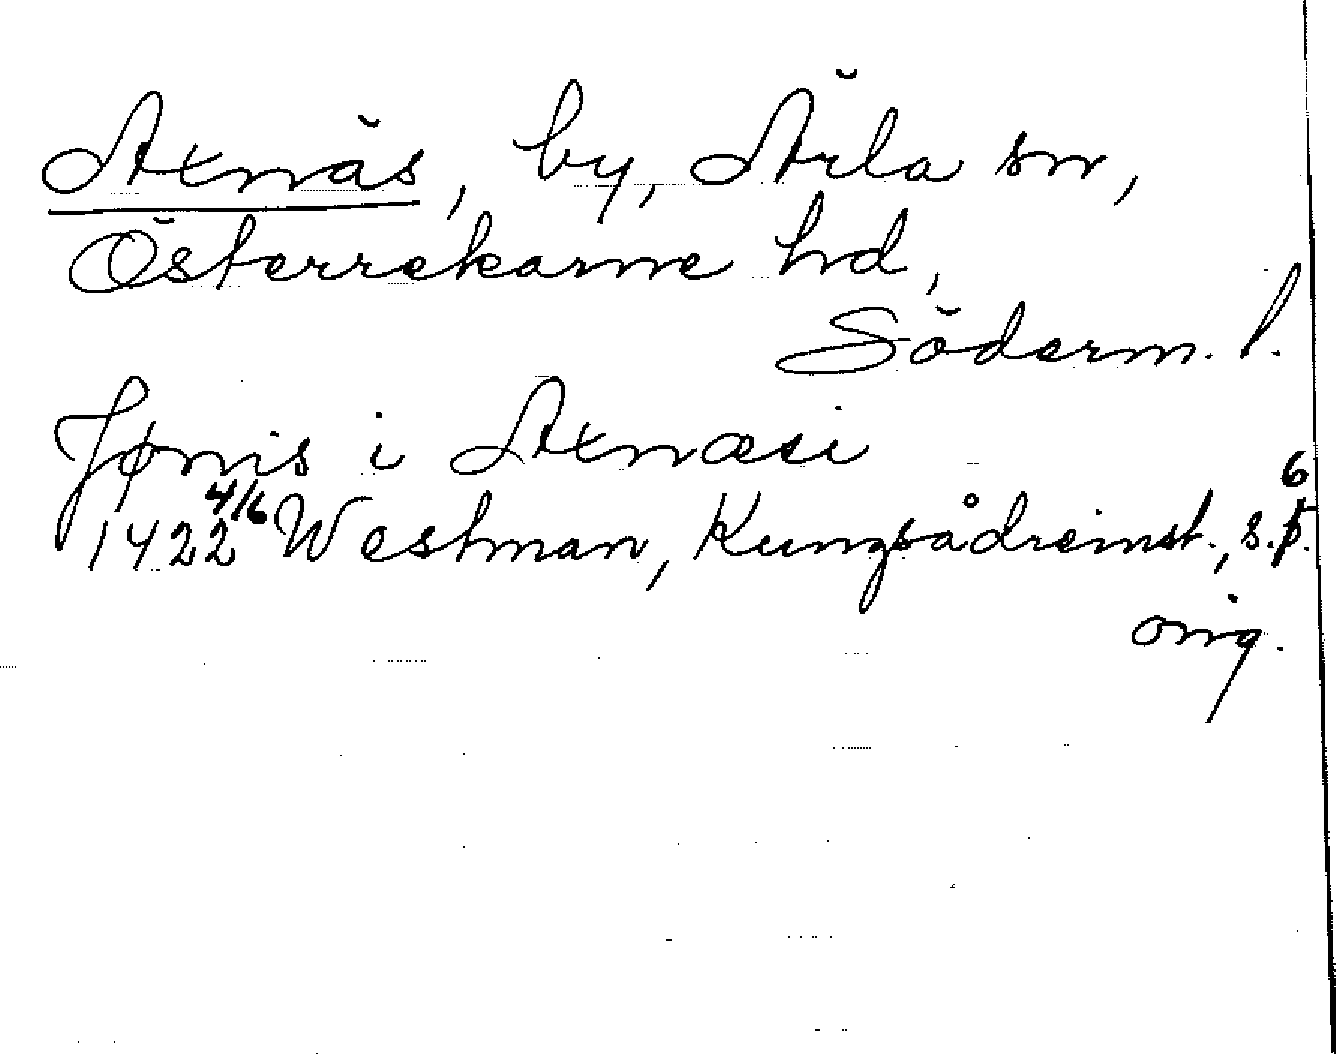 Axnäs, by, Ärla sn,
Österrekarne hd,
Söderm. l.
Jønis i Axnæsi
1422 4/6 Westman, Kungsådreinst., s. 6
orig.